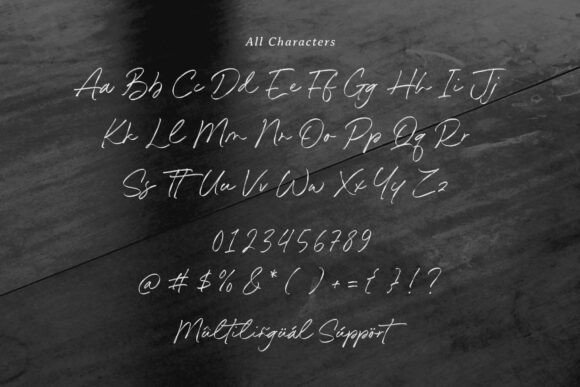 All Characters
Aa Bb Cc Dd Ee Ff Gg Hh Ii Jj
Kk Ll Mm Nn Oo Pp Qq Rr
Ss Tt Uu Vv Ww Xx Yy Zz
0123456789
@ # $ % & * ( ) + = { } ! ?
Mûltilir̃güál Súppört